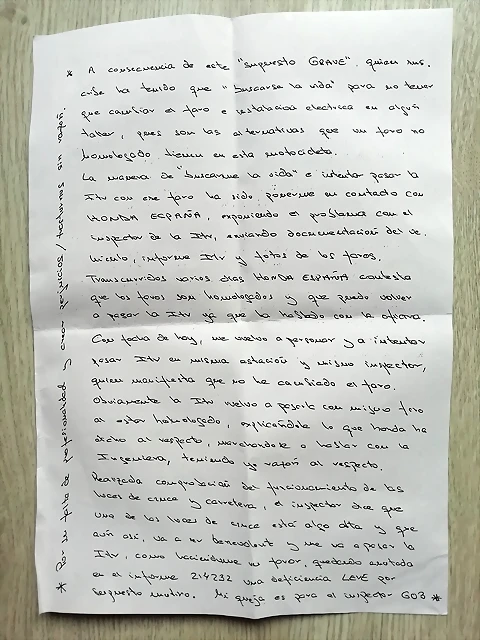 * A consecuencia de este "supuesto GRAVE", quien sus-
cribe ha tenido que "buscarse la vida" para no tener
que cambiar el faro e instalación electrica en algún
taller, pues son las alternativas que un faro no
homologado tienen en esta motocicleta.
La manera de "buscarme la vida" e intentar pasar la
Itv con ese faro ha sido ponerme en contacto con
HONDA ESPAÑA, exponiendo el problema con el
inspector de la Itv, enviando documentación del ve-
hículo, informe Itv y fotos de los faros.
Transcurridos varios días HONDA ESPAÑA contesta
que los faros son homologados y que puedo volver
a pasar la Itv ya que ha hablado con la oficina.
Con fecha de hoy, me vuelvo a personar y a intentar
pasar Itv en misma estación y mismo inspector,
quien manifiesta que no he cambiado el faro.
Obviamente la Itv vuelvo a pasarla con mismo faro
al estar homologado, explicándole lo que honda ha
dicho al respecto, marchándole a hablar con la
Ingeniera, teniendo yo razón al respecto.
Realizada comprobación del funcionamiento de las
luces de cruce y carretera, el inspector dice que
una de las luces de cruce está algo alta y que
aún así, va a ser benevolent y me va a pasar la
Itv, como haciéndome un favor, quedando anotada
en el informe 214232 una deficiencia LEVE por
supuesto motivo. Mi queja es para el inspector 603 *
* Por su falta de profesionalidad y crear perjuicios / trastornos sin razón.